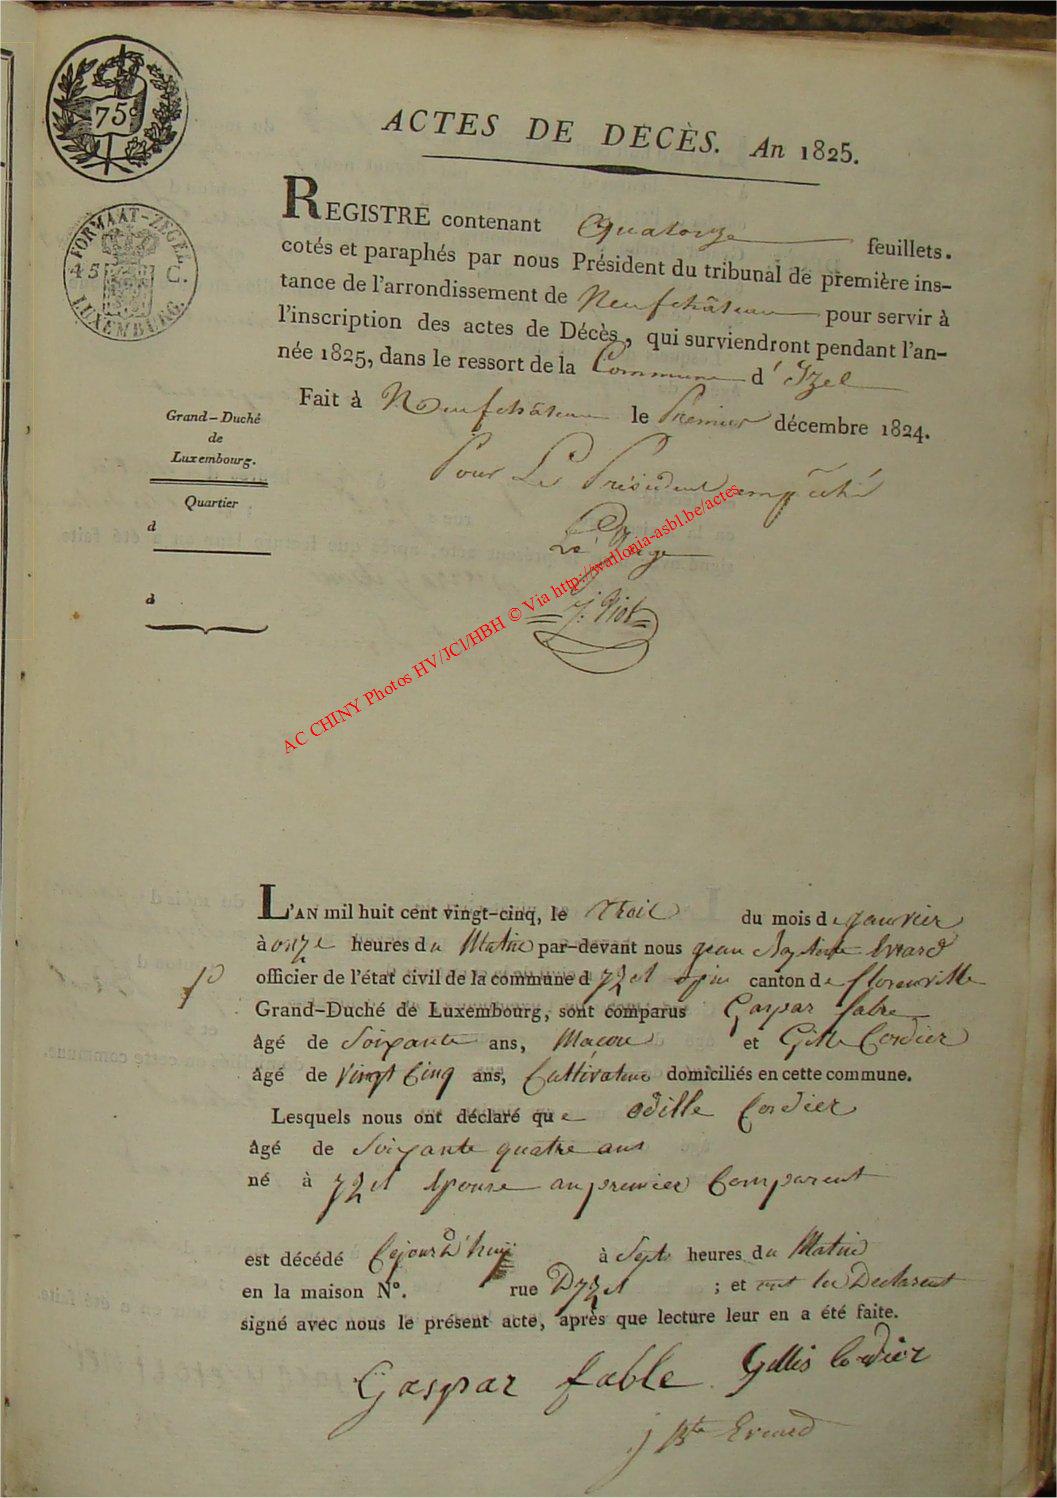 75 c
ACTES DE DÉCÈS. An 1825.
FORMAAT-ZEGEL
45 C.
LUXEMBURG.
REGISTRE contenant Quatorze feuillets.
cotés et paraphés par nous Président du tribunal de première ins-
tance de l'arrondissement de Neufchâteau pour servir à
l'inscription des actes de Décès, qui surviendront pendant l'an-
née 1825, dans le ressort de la Commune d' Izel
Fait à Neufchâteau le Premier décembre 1824.
Grand-Duché
de
Luxembourg.
Quartier
d
d
Pour Le Président empêché
Le Juge
AC CHINY Photos HV/JCl/HBH © Via http://wallonia-asbl.be/actes
L'AN mil huit cent vingt-cinq, le trois du mois de janvier
à onze heures du Matin par-devant nous jean Baptiste Evrard
officier de l'état civil de la commune d yzel canton de florenville
Grand-Duché de Luxembourg, sont comparus Gaspar fable
âgé de Soixante ans, Maçon et Gille Cordier
âgé de Vingt Cinq ans, Cultivateur domiciliés en cette commune.
Lesquels nous ont déclaré que odille Cordier
âgé de Soixante quatre ans
né à yzel Epouse au premier Comparent
est décédé Cejourd'huy à Sept heures du Matin
en la maison N°. rue Dyzel ; et ont les Declarent
signé avec nous le présent acte, après que lecture leur en a été faite.
Gaspar fable Gillis Cordier
j Bte Evrard